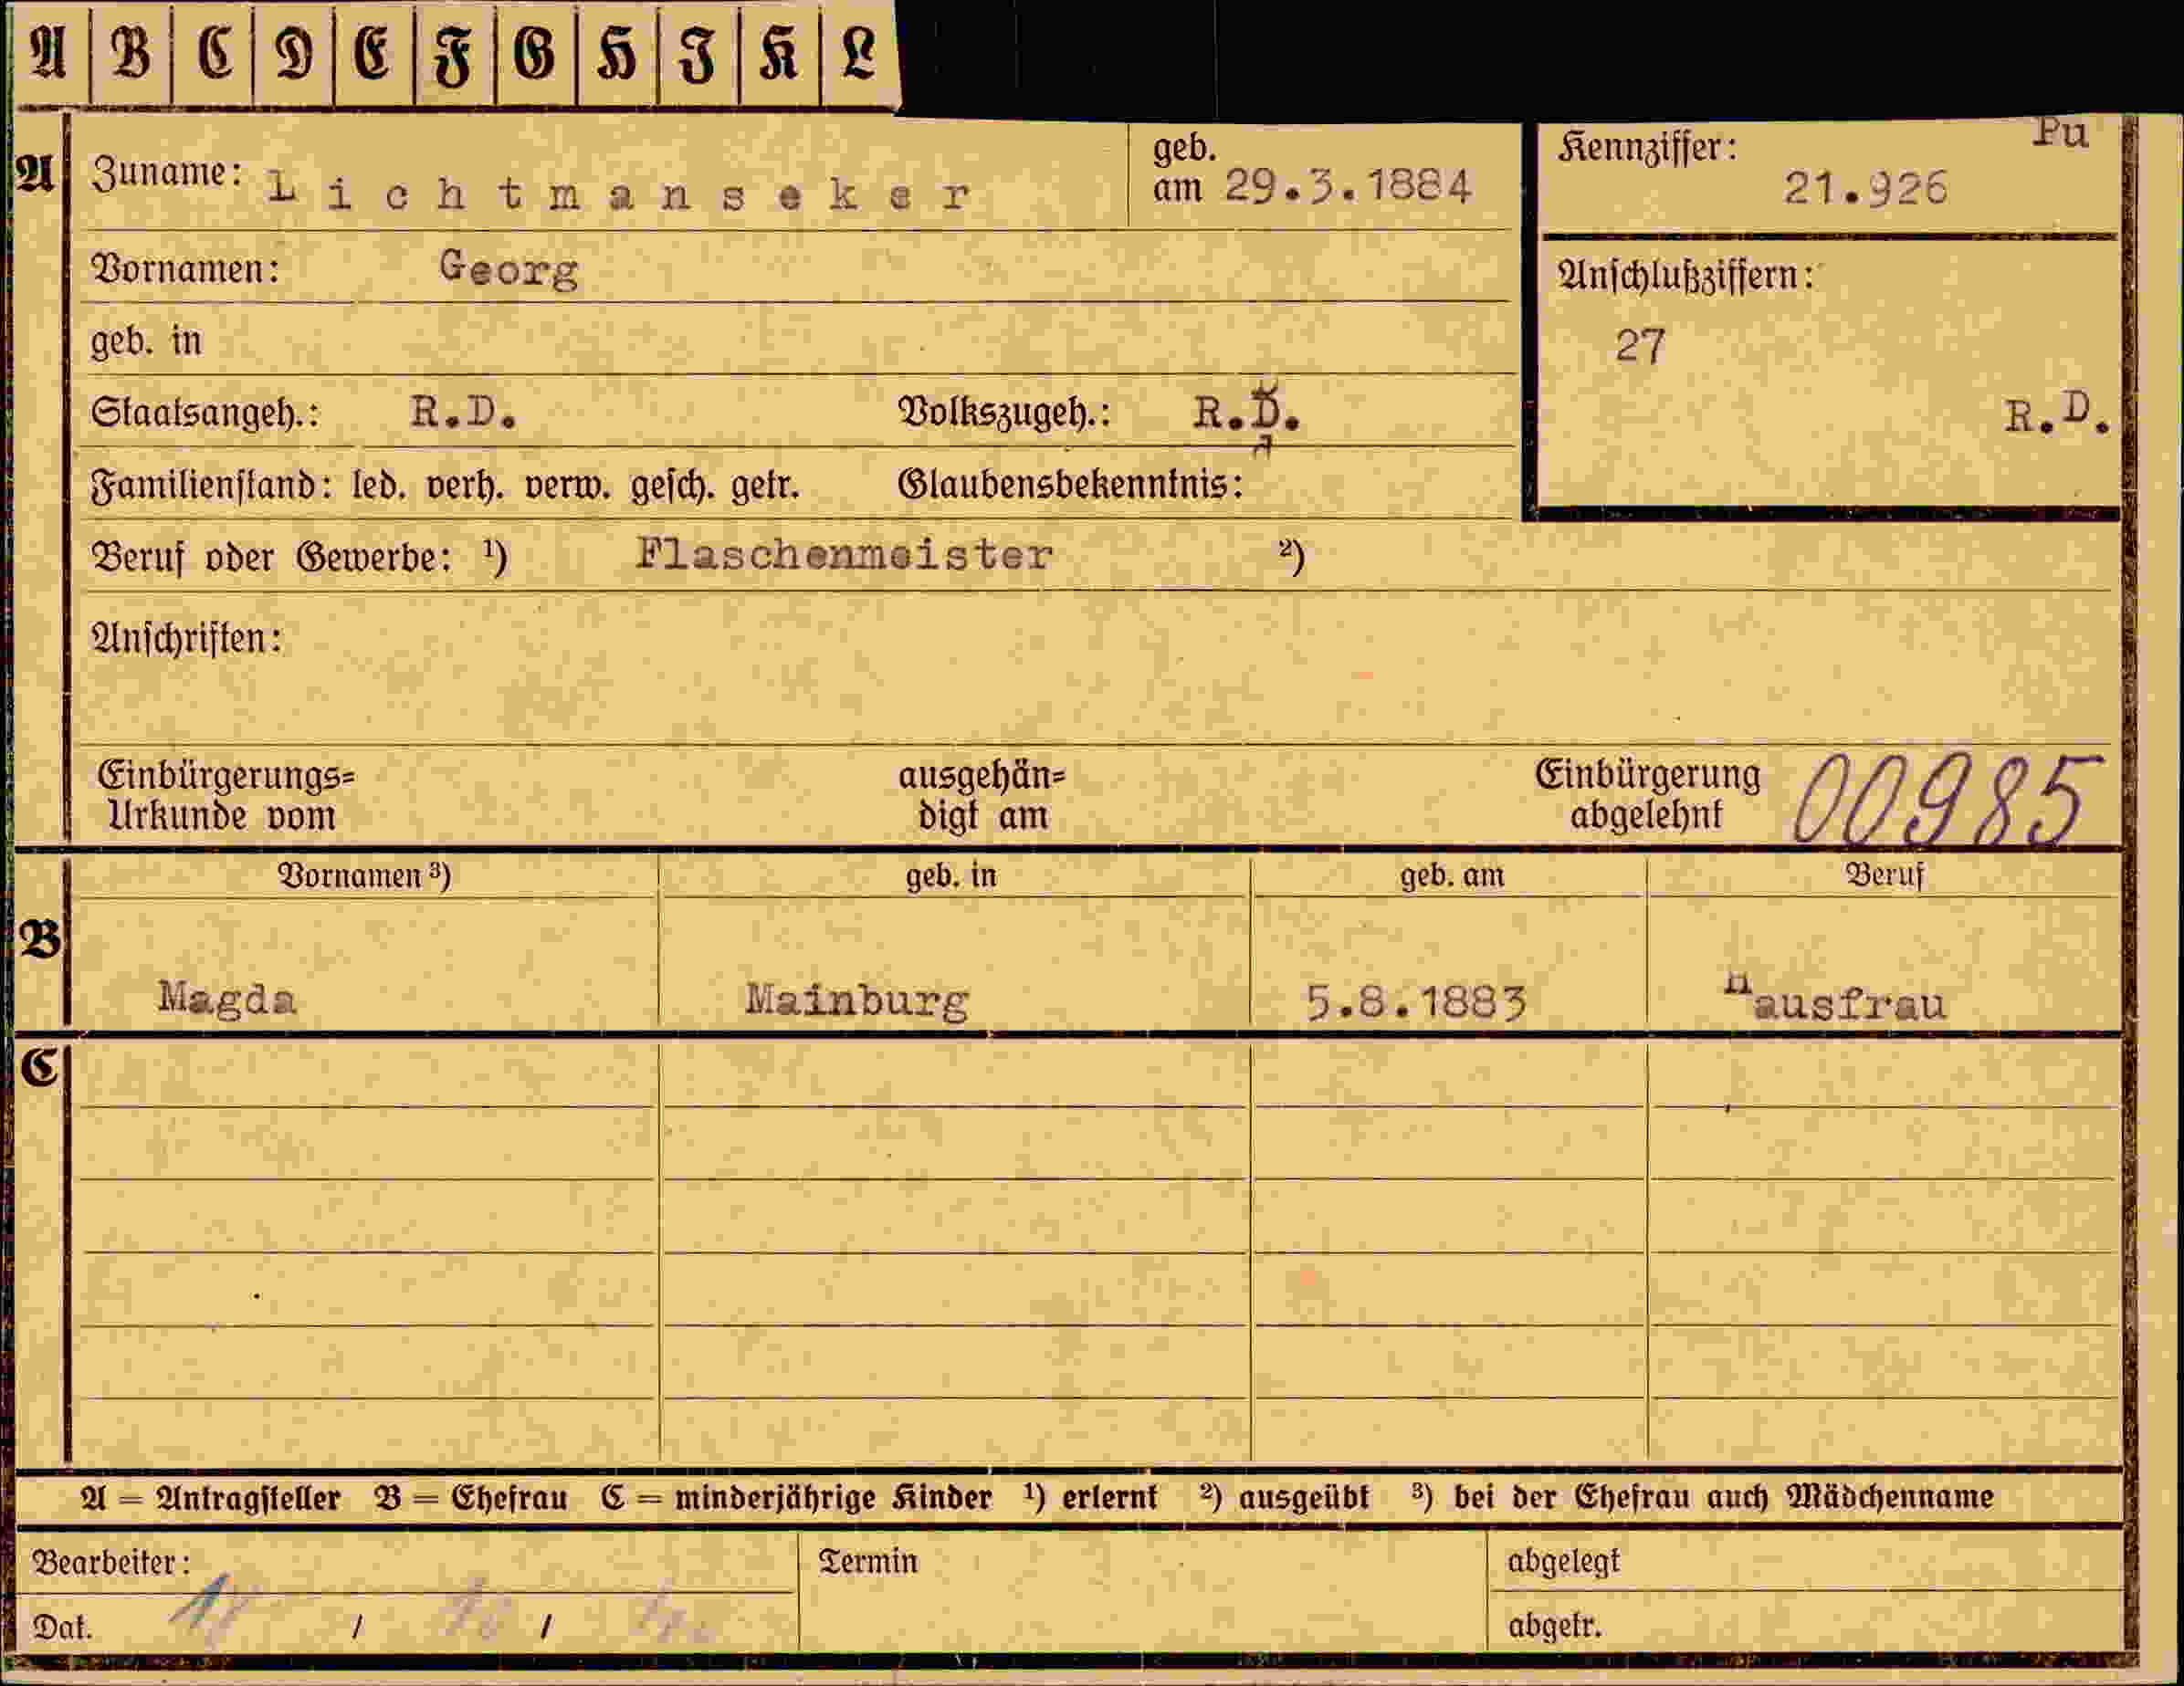 A B C D E F G H I K L
A Zuname: Lichtmanseker geb. am 29.3.1884 Kennziffer: Pu 21.926
Vornamen: Georg Anschlußziffern:
geb. in 27
Staatsangeh.: R.D. Volkszugeh.: R.D. R.D.
Familienstand: led. verh. verw. gesch. getr. Glaubensbekenntnis:
Beruf oder Gewerbe: ¹) Flaschenmeister ²)
Anschriften:
Einbürgerungs= ausgehän= Einbürgerung 00985
Urkunde vom digt am abgelehnt
Vornamen ³) geb. in geb. am Beruf
B
Magda Mainburg 5.8.1883 Hausfrau
C
A = Antragsteller B = Ehefrau C = minderjährige Kinder ¹) erlernt ²) ausgeübt ³) bei der Ehefrau auch Mädchenname
Bearbeiter: Termin abgelegt
Dat. / / abgetr.